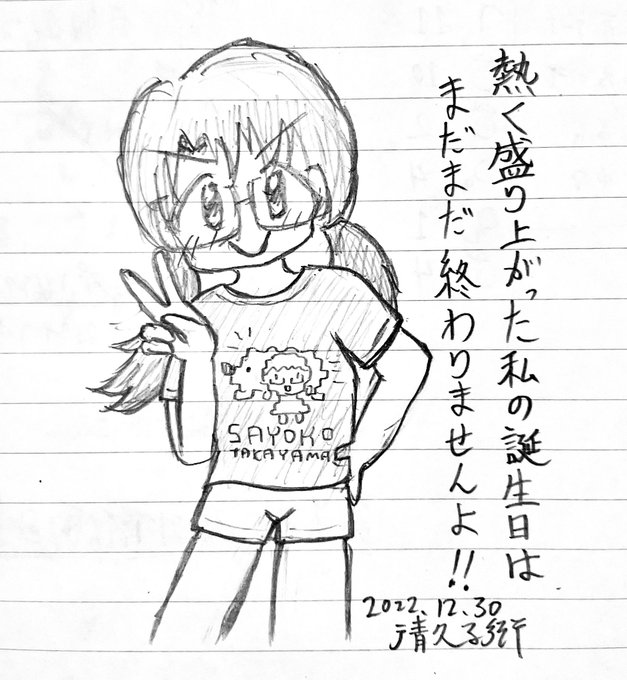 熱く盛り上がった私の誕生日は
まだまだ終わりませんよ!!
SAYOKO
TAKAYAMA
2022.12.30